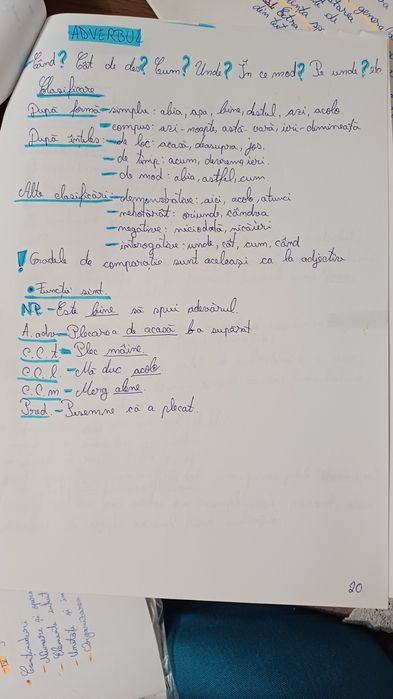 ADVERBUL
Când? Cât de des? Cum? Unde? În ce mod? Pe unde? etc
Clasificare
După formă - simplu: abia, așa, bine, destul, azi, acolo
- compus: azi-noapte, astă vară, ieri-dimineață
După înțeles: - de loc: acasă, deasupra, jos.
- de timp: acum, devreme, ieri.
- de mod: abia, astfel, cum.
Alte clasificări - demonstrative: aici, acolo, atunci
- nehotărât: oriunde, cândva
- negative: niciodată, nicăieri
- interogative: unde, cât, cum, când
! Gradele de comparație sunt aceleași ca la adjectiv
• Funcții sint.
NP - Este bine să spui adevărul.
A. adv - Plecarea de acasă l-a supărat.
C.C.t. - Plec mâine.
C.C.l. - Mă duc acolo.
C.C.m - Merg alene.
Pred. - Pesemne că a plecat.
20
• Conținuturi